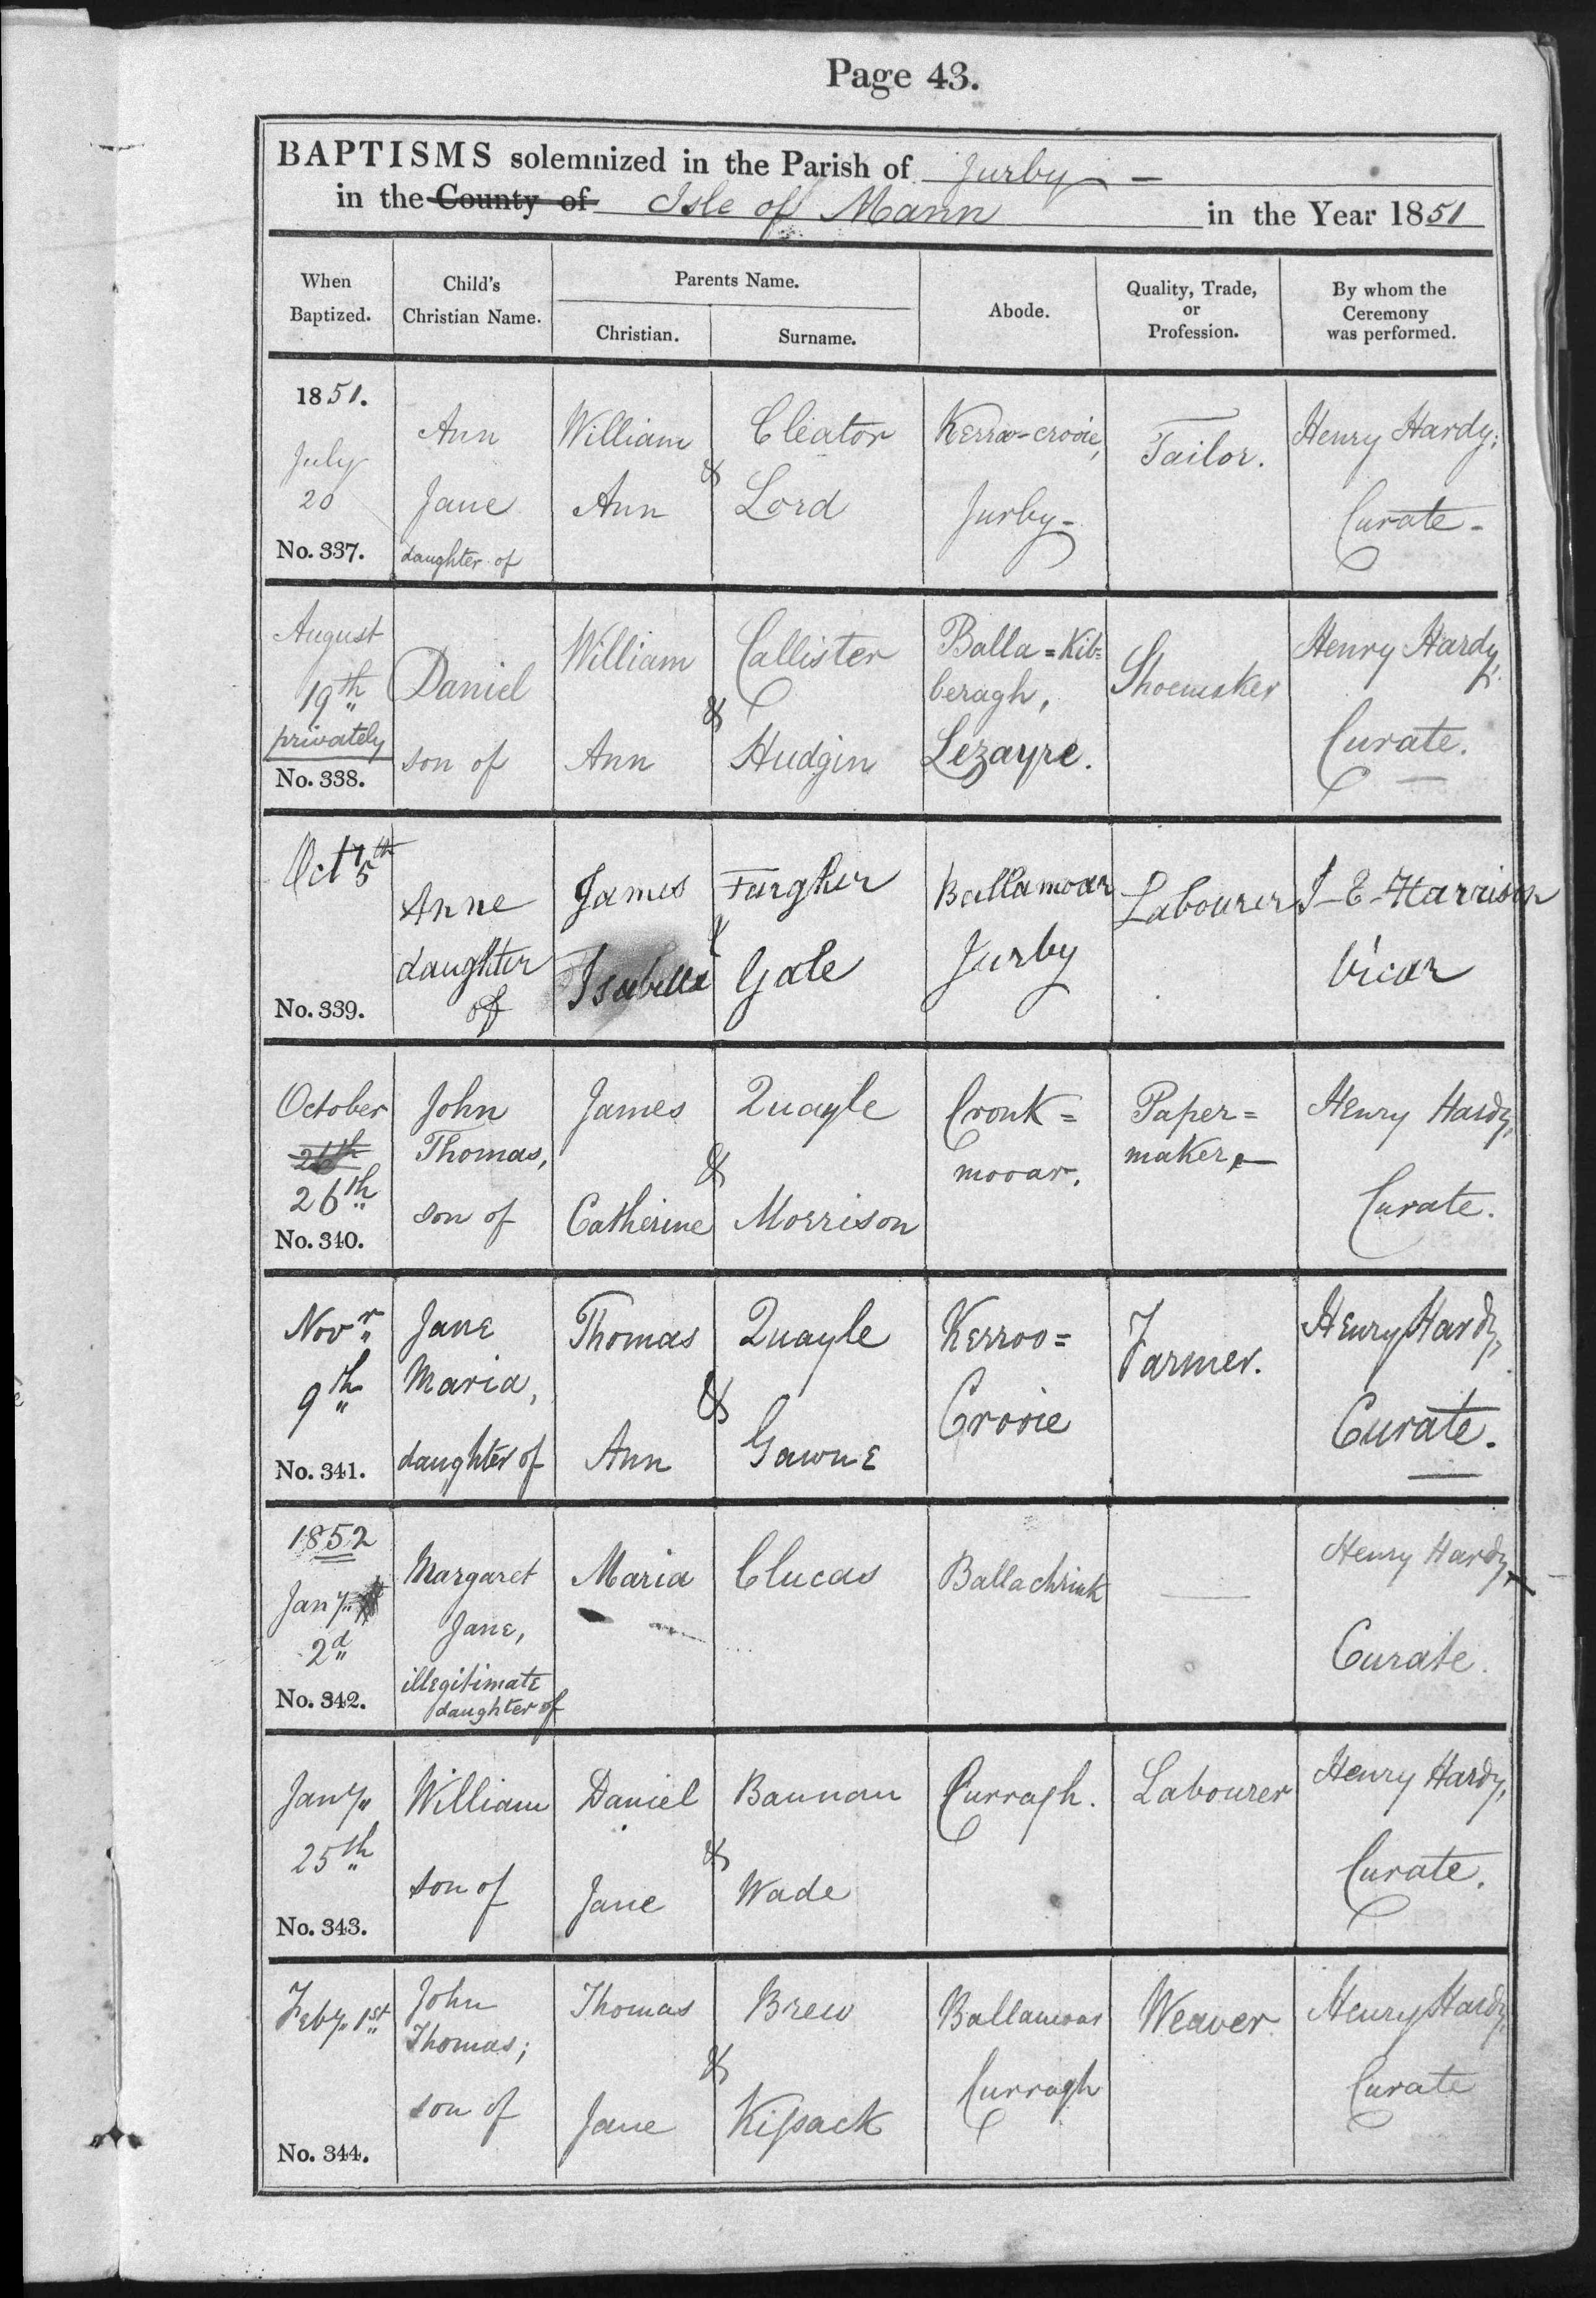 Page 43.
BAPTISMS solemnized in the Parish of Jurby —
in the County of Isle of Mann in the Year 1851
When Baptized.
Child's Christian Name.
Parents Name.
Christian.
Surname.
Abode.
Quality, Trade, or Profession.
By whom the Ceremony was performed.
1851.
July
20
No. 337.
Ann
Jane
daughter of
William
&
Ann
Cleator
Lord
Kerroo-crooie,
Jurby-
Tailor.
Henry Hardy;
Curate-
August
19th
privately
No. 338.
Daniel
son of
William
&
Ann
Callister
Hudgin
Balla=Kib=
beragh,
Lezayre.
Shoemaker
Henry Hardy,
Curate.
Oct 5th
No. 339.
Anne
daughter
of
James
&
Isabella
Fargher
Gale
Ballamoar
Jurby
Labourer
J-E-Harrison
Vicar
October
26th
26th
No. 340.
John
Thomas,
son of
James
&
Catherine
Quayle
Morrison
Cronk=
mooar.
Paper=
maker
Henry Hardy,
Curate.
Novr
9th
No. 341.
Jane
Maria,
daughter of
Thomas
&
Ann
Quayle
Gawne
Kerroo=
Crooie
Farmer.
Henry Hardy,
Curate.
1852
Jany
2d
No. 342.
Margaret
Jane,
illegitimate
daughter of
Maria
Clucas
Ballachrink
—
Henry Hardy,
Curate.
Jany
25th
No. 343.
William
son of
Daniel
&
Jane
Bannan
Wade
Curragh.
Labourer
Henry Hardy,
Curate.
Feby 1st
No. 344.
John
Thomas;
son of
Thomas
&
Jane
Brew
Kissack
Ballamoar
Curragh
Weaver.
Henry Hardy,
Curate